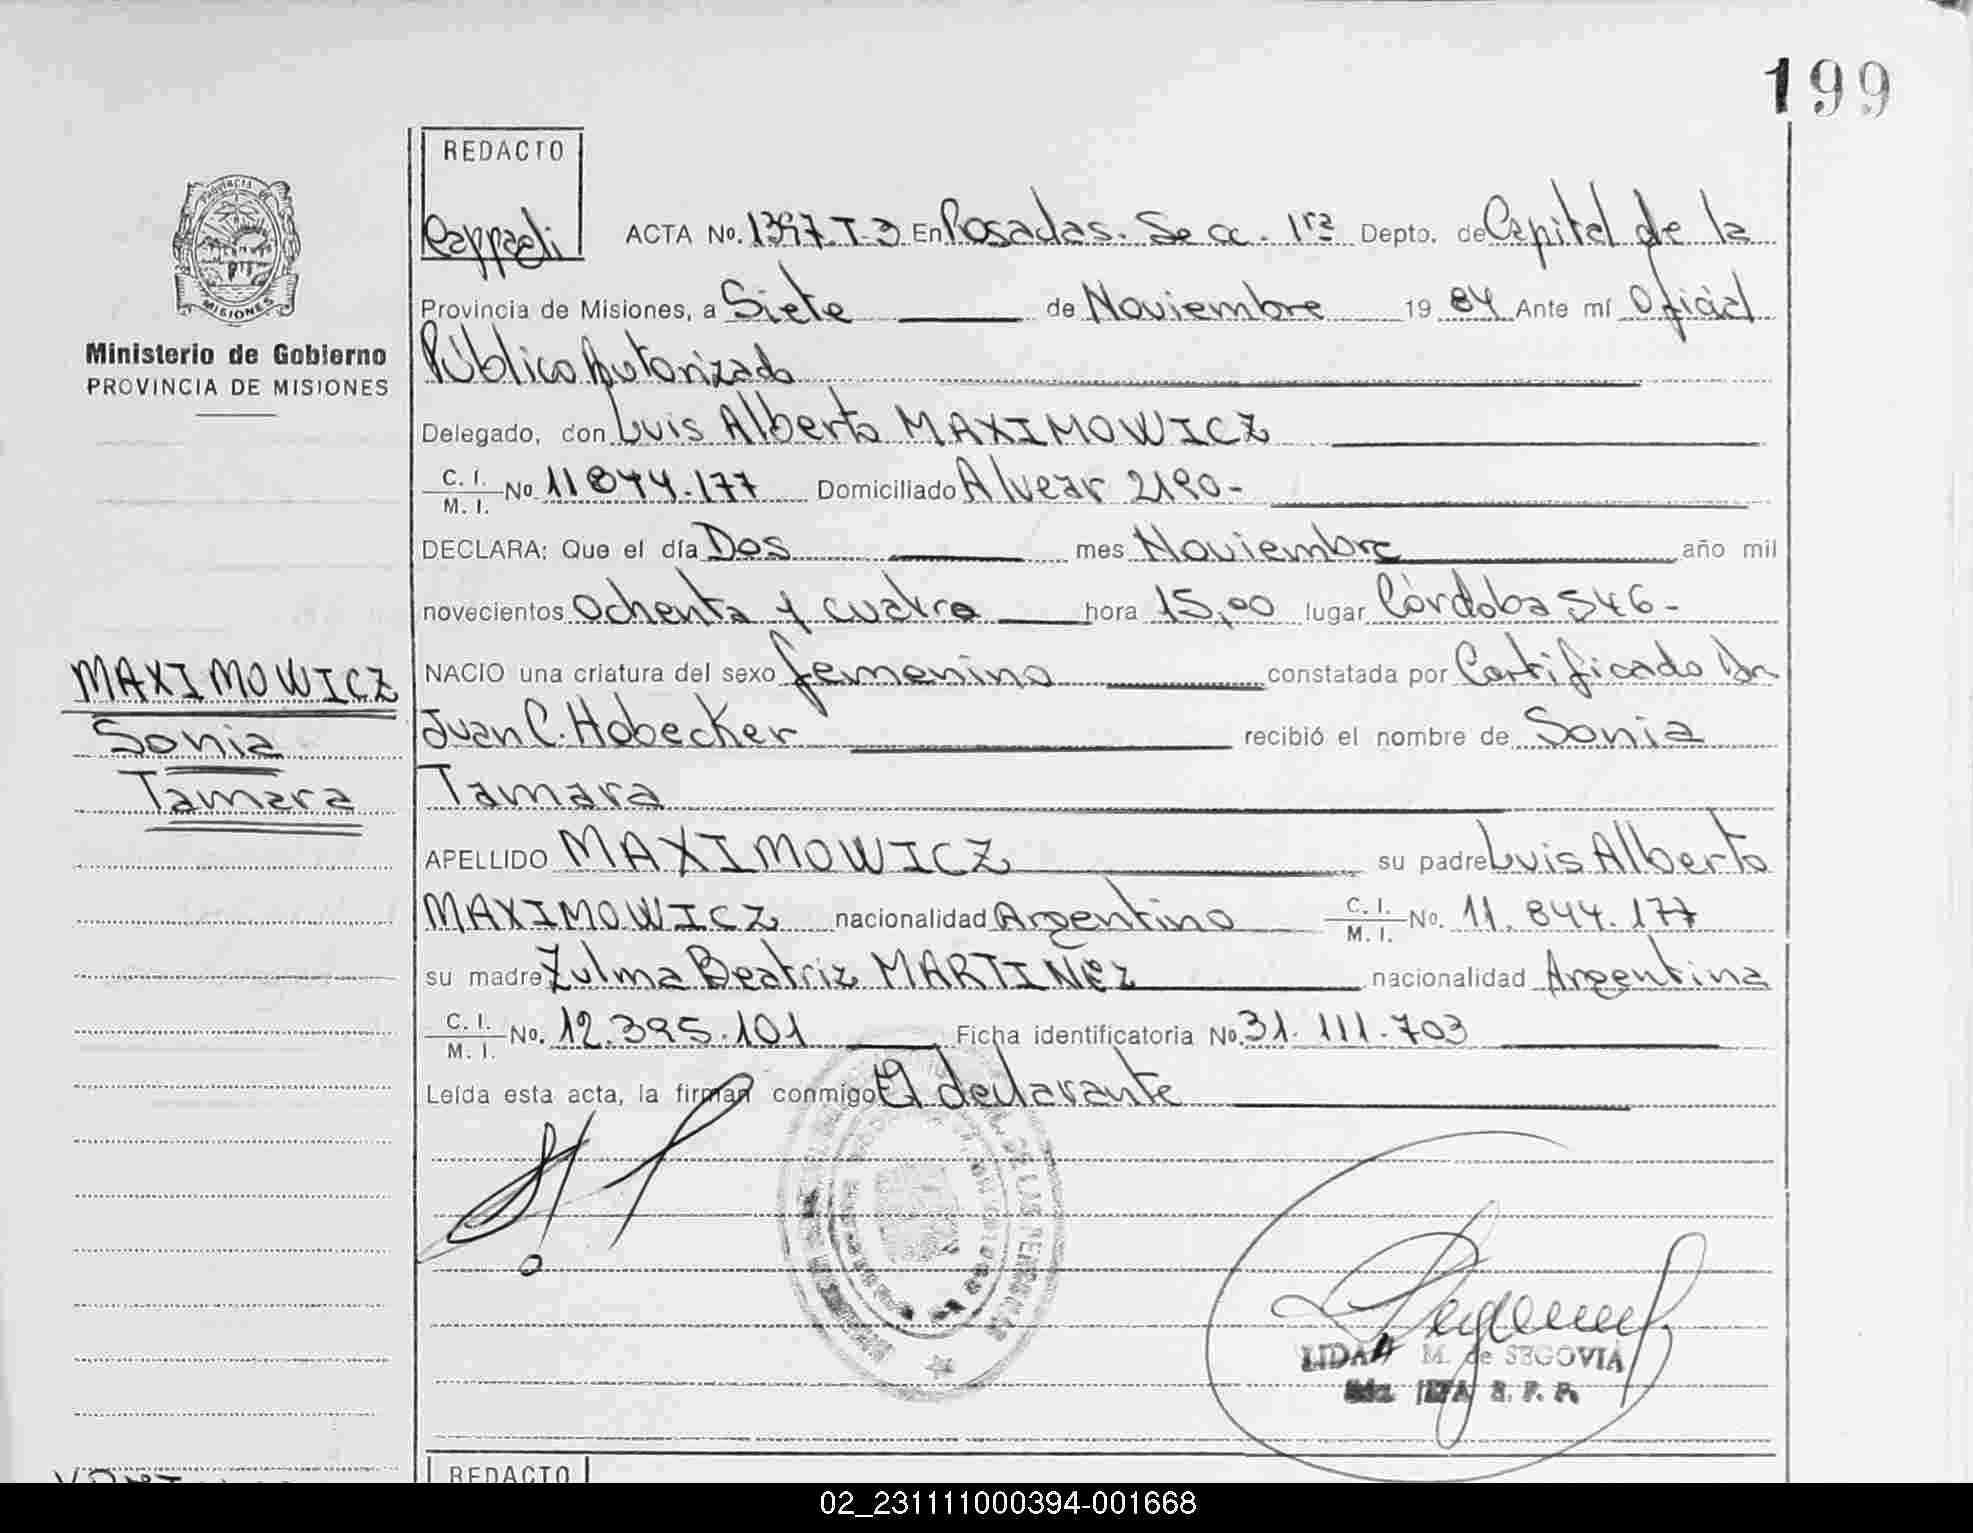 199
REDACTO
Rappaeli
ACTA No. 1397. T-3 En Posadas. Secc. 1ra Depto. de Capital de la
PROVINCIA DE
MISIONES
Provincia de Misiones, a Siete de Noviembre 1984 Ante mí Oficial
Ministerio de Gobierno
PROVINCIA DE MISIONES
Público Autorizado
Delegado, don Luis Alberto MAXIMOWICZ
C. I. M. I. No 11 844.177 Domiciliado Alvear 2190-
DECLARA: Que el día Dos mes Noviembre año mil
novecientos Ochenta y cuatro hora 15,00 lugar Córdoba 546-
MAXIMOWICZ
Sonia
Tamara
NACIO una criatura del sexo femenino constatada por Certificado Dr.
Juan C. Hobecker recibió el nombre de Sonia
Tamara
APELLIDO MAXIMOWICZ su padre Luis Alberto
MAXIMOWICZ nacionalidad Argentino C. I. M. I. No. 11. 844. 177
su madre Zulma Beatriz MARTINEZ nacionalidad Argentina
C. I. M. I. No. 12.395.101 Ficha identificatoria No. 31. 111.703
Leída esta acta, la firman conmigo El declarante
DE LAS PERSONAS
LIDA M. de SEGOVIA
REDACTO
02_231111000394-001668